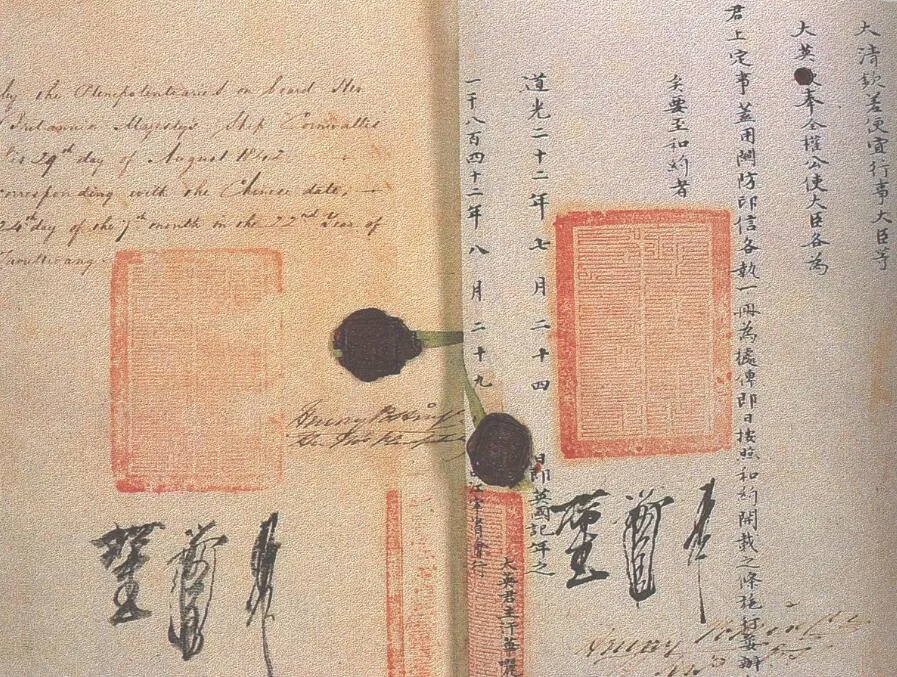 by the Plenipotentiaries on board Her
Britannic Majesty's Ship Cornwallis
this 29th day of August 1842
corresponding with the Chinese date,
24th day of the 7th month in the 22nd Year of
Taoukwang
Henry Pottinger
大清欽差便宜行事大臣等
大英欽奉全權公使大臣各為
君上定事蓋用關防印信各執一冊為據俾即日按照和約開載之條施行妥辦
矣要至和約者
道光二十二年七月二十四日即英國記年之
一千八百四十二年八月二十九 江寧省會行
大英君主汗華囇
Henry Pottinger